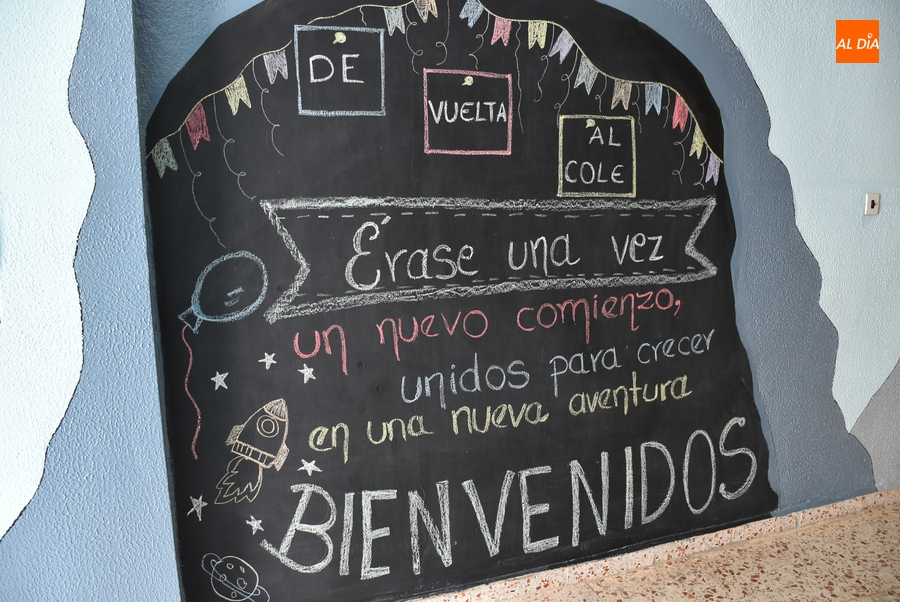 DE
VUELTA
AL
COLE
Érase una vez
un nuevo comienzo,
unidos para crecer
en una nueva aventura
BIENVENIDOS
AL DÍA